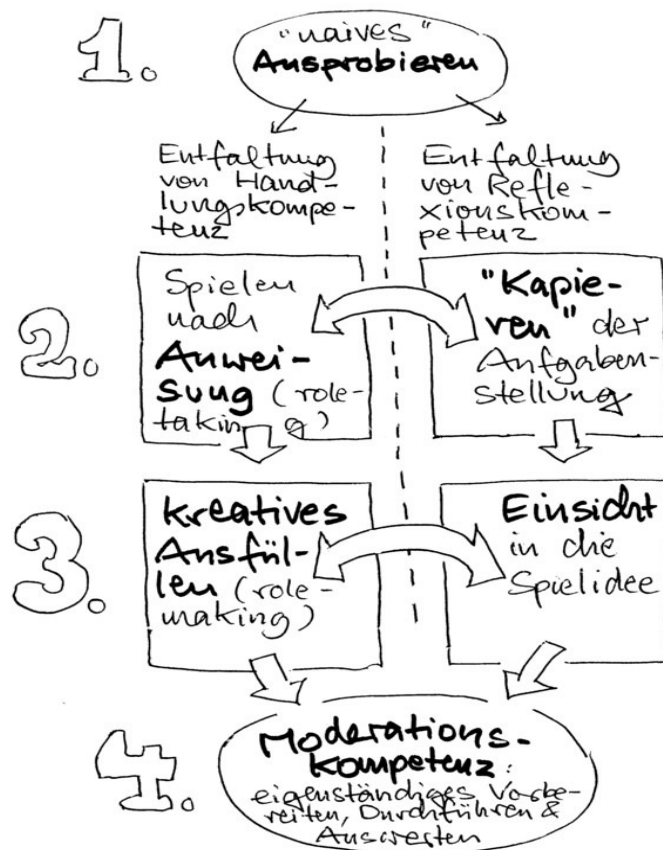 1.
"naives"
Ausprobieren
Entfaltung
von Hand-
lungskompe-
tenz
Entfaltung
von Refle-
xionskom-
petenz
2.
Spielen
nach
Anwei-
sung (role-
taking)
"Kapie-
ren" der
Aufgaben-
stellung
3.
kreatives
Ausfül-
len (role-
making)
Einsicht
in die
Spielidee
4.
Moderations-
kompetenz:
eigenständiges Vorbe-
reiten, Durchführen &
Auswerten